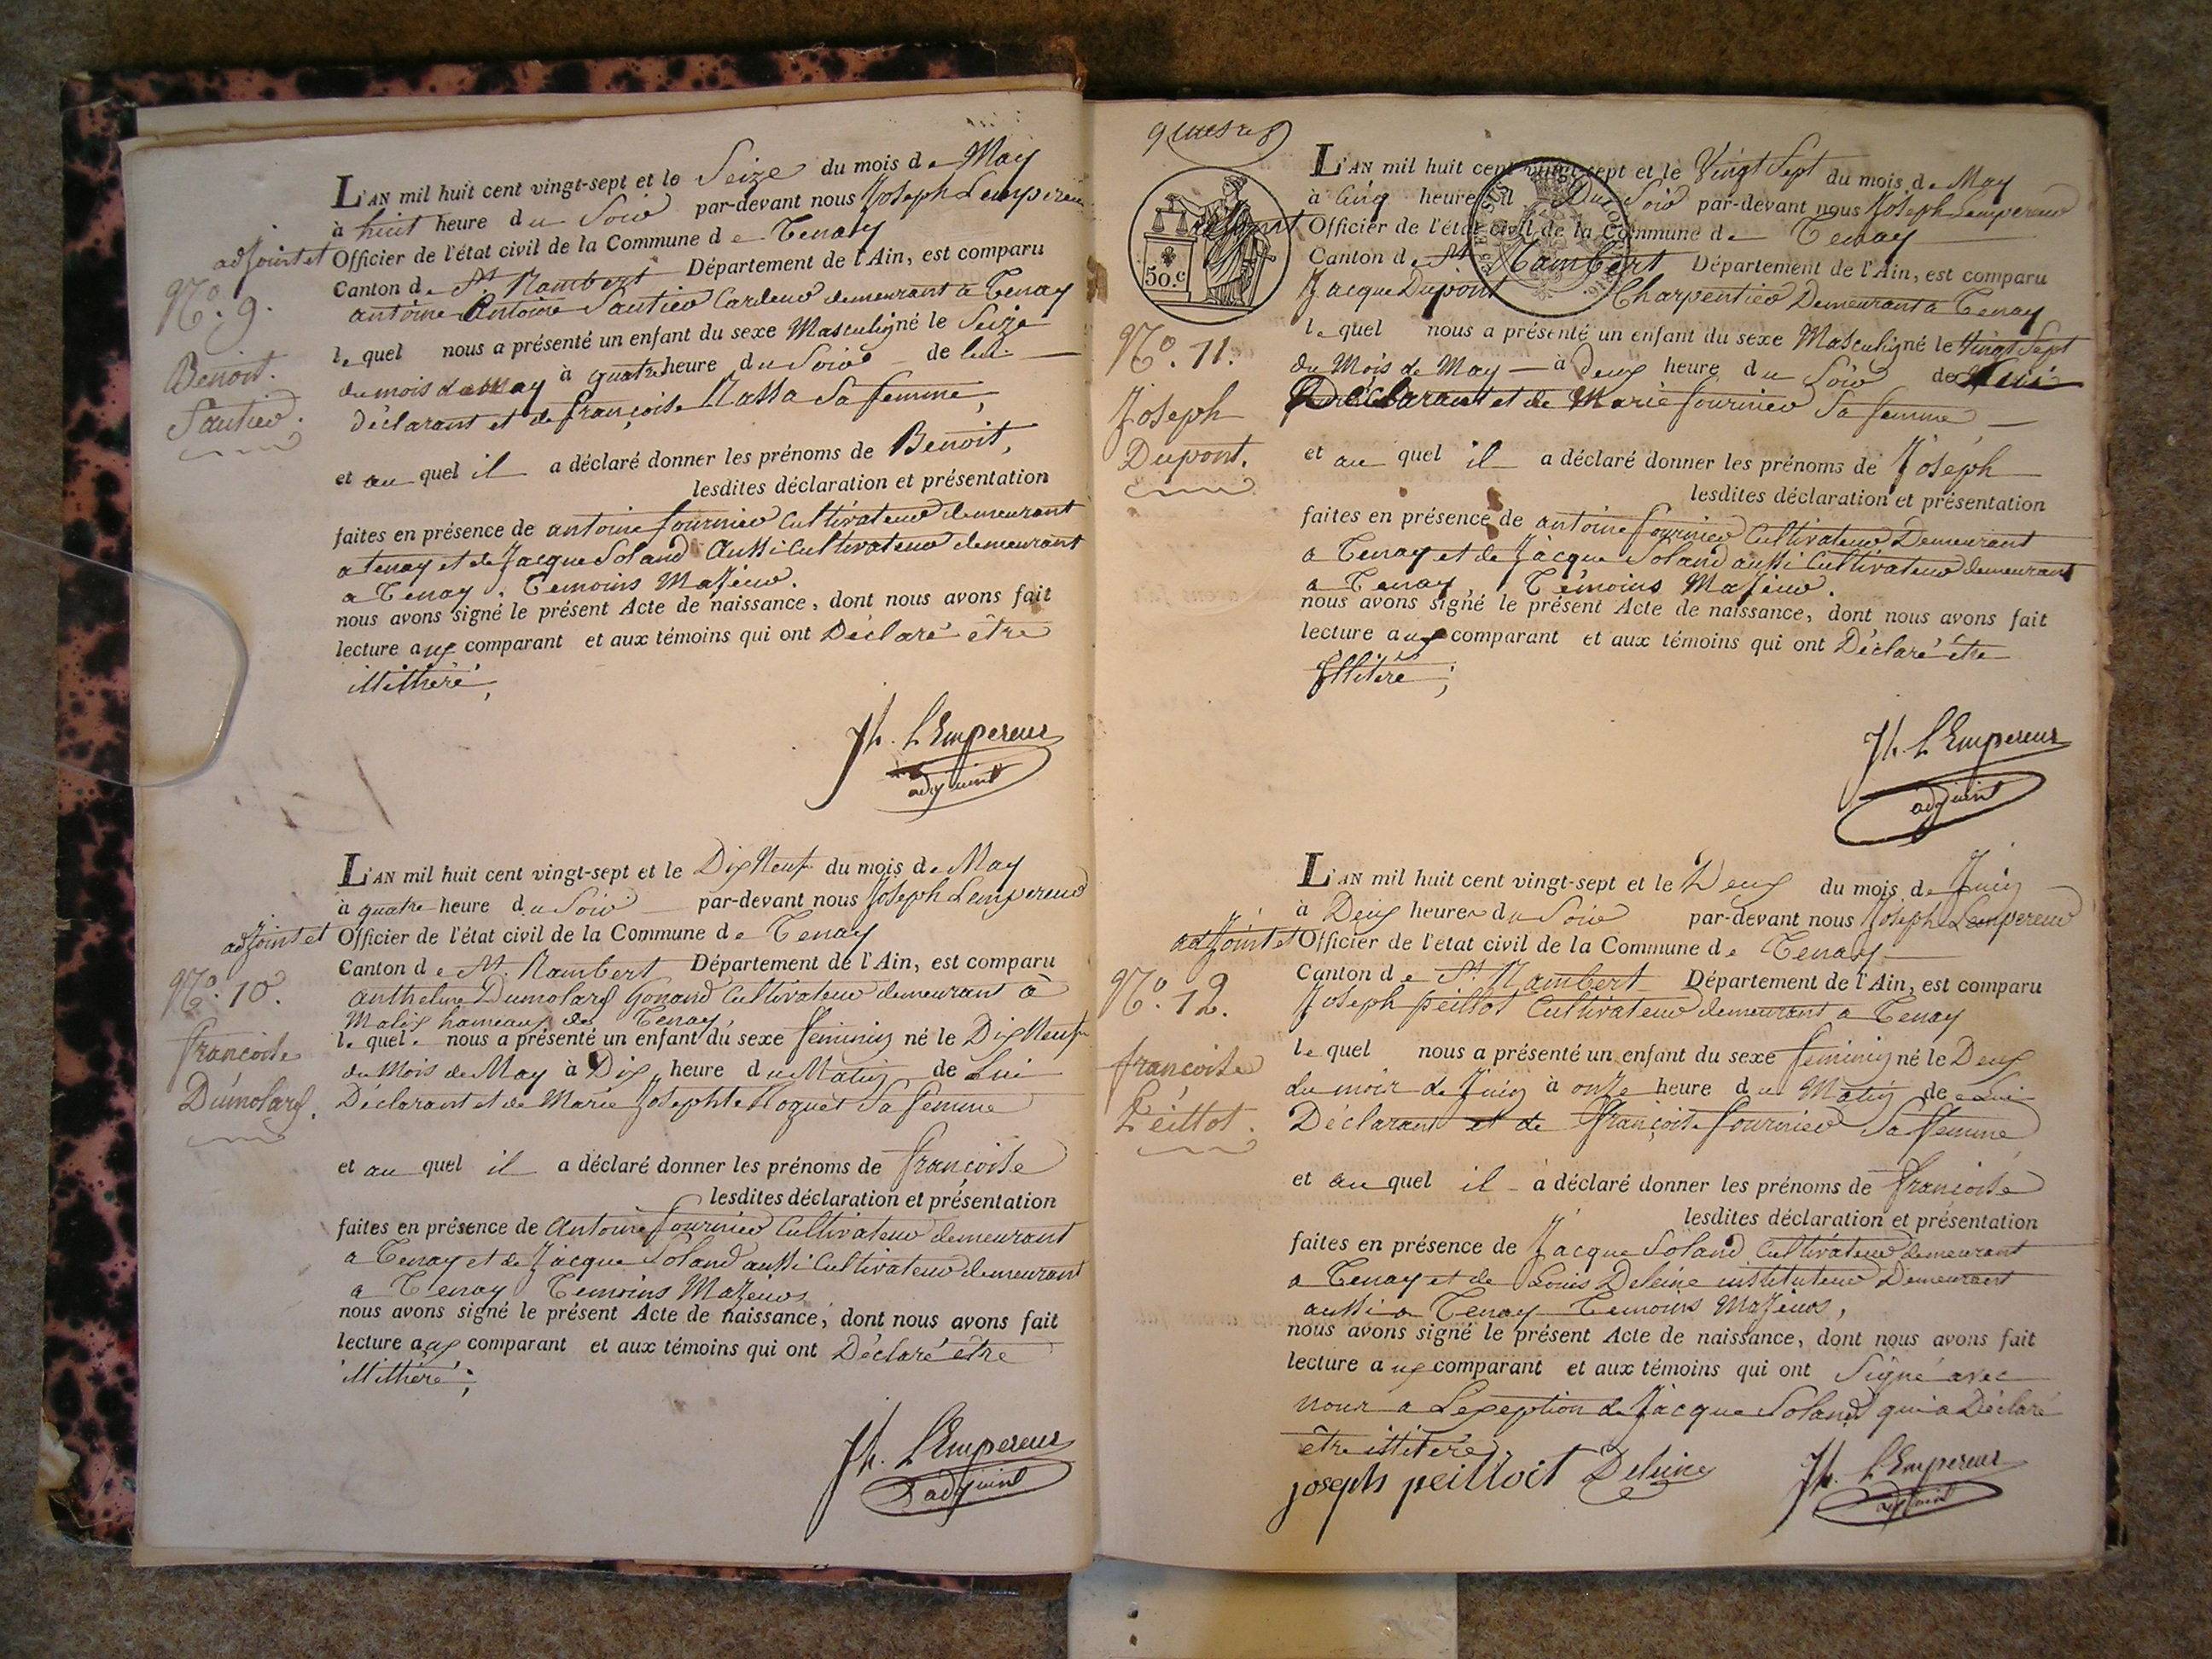 L'AN mil huit cent vingt-sept et le Seize du mois de May
à huit heure du Soir par-devant nous Joseph Lempereur
adjoint et Officier de l'état civil de la Commune de Tenay
Canton de St Rambert Département de l'Ain, est comparu
N.o 9.
antoine Antoine Sautier Cardeur demeurant a Tenay
le quel nous a présenté un enfant du sexe Masculin né le Seize
Benoit.
du mois de May à quatre heure du Soir de lui
Sautier.
déclarant et de françoise Sa femme,
et au quel il a déclaré donner les prénoms de Benoit,
lesdites déclaration et présentation
faites en présence de antoine fournier Cultivateur demeurant
a tenay et de Jacque Soland Aussi Cultivateur demeurant
a Tenay, Temoins Majeur.
nous avons signé le présent Acte de naissance, dont nous avons fait
lecture aux comparant et aux témoins qui ont Déclaré être
illitheré,
Jh. L'Empereur
adjoint
L'AN mil huit cent vingt-sept et le Dix Neuf du mois de May
à quatre heure du Soir par-devant nous Joseph Lempereur
adjoint et Officier de l'état civil de la Commune de Tenay
Canton de St. Rambert Département de l'Ain, est comparu
N.o 10.
anthelme Dumolard Gonand Cultivateur demeurant à
Malix hameaux de Tenay,
le quel nous a présenté un enfant du sexe feminin né le Dix Neuf
francoise
du Mois de May à Dix heure du Matin de Lui
Dumolard.
Déclarant et de Marie Josephte Sa femme
et au quel il a déclaré donner les prénoms de françoise
lesdites déclaration et présentation
faites en présence de Antoine fournier Cultivateur demeurant
a Tenay et de Jacque Soland aussi Cultivateur demeurant
a Tenay Temoins Majeurs
nous avons signé le présent Acte de naissance, dont nous avons fait
lecture aux comparant et aux témoins qui ont Déclaré être
illitheré;
Jh. L'Empereur
adjoint
50.c
L'AN mil huit cent vingt-sept et le Vingt Sept du mois de May
à Cinq heure du Soir par-devant nous Joseph Lempereur
adjoint Officier de l'état civil de la Commune de Tenay
Canton de St Rambert Département de l'Ain, est comparu
Jacque Dupont Charpentier Demeurant a Tenay
N.o 11.
le quel nous a présenté un enfant du sexe Masculin né le Vingt Sept
du Mois de May à Deux heure du Soir de Lui
Joseph
Déclarant et de Marie fournier Sa femme
Dupont.
et au quel il a déclaré donner les prénoms de Joseph
lesdites déclaration et présentation
faites en présence de antoine fournier Cultivateur Demeurant
a Tenay et de Jacque Soland aussi Cultivateur demeurant
a Tenay, Témoins Majeur.
nous avons signé le présent Acte de naissance, dont nous avons fait
lecture aux comparant et aux témoins qui ont Déclaré être
Illiteré;
Jh. L'Empereur
adjoint
L'AN mil huit cent vingt-sept et le Deux du mois de Juin
à Deux heures du Soir par-devant nous Joseph Lempereur
adjoint et Officier de l'état civil de la Commune de Tenay
Canton de St Rambert Département de l'Ain, est comparu
N.o 12.
Joseph peillot Cultivateur demeurant a Tenay
le quel nous a présenté un enfant du sexe feminin né le Deux
francoise
du mois de Juin à onze heure du Matin de Lui
Peillot.
Déclarant et de françoise fournier Sa femme
et au quel il a déclaré donner les prénoms de francoise
lesdites déclaration et présentation
faites en présence de Jacque Soland Cultivateur demeurant
a Tenay et de Louis Deleine instituteur Demeurant
aussi a Tenay Temoins Majeurs,
nous avons signé le présent Acte de naissance, dont nous avons fait
lecture aux comparant et aux témoins qui ont Signé avec
nous a Lexeption de Jacque Soland qui a Déclaré
être illiteré.
joseph peilloit Deleine Jh. L'Empereur
adjoint